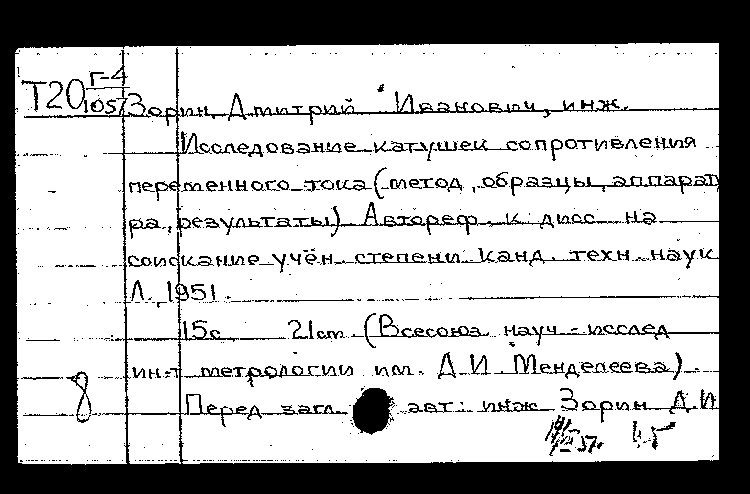 Г-4
Т20 1057 Зорин, Дмитрий Иванович, инж.
Исследование катушек сопротивления
переменного тока (метод, образцы, аппарат
ра, результаты) Автореф. к дисс. на
соискание учён. степени канд. техн. наук
Л., 1951.
15с 21см (Всесоюз. науч.-исслед
ин-т метрологии им. Д.И. Менделеева).
8 Перед загл. авт: инж Зорин Д.И